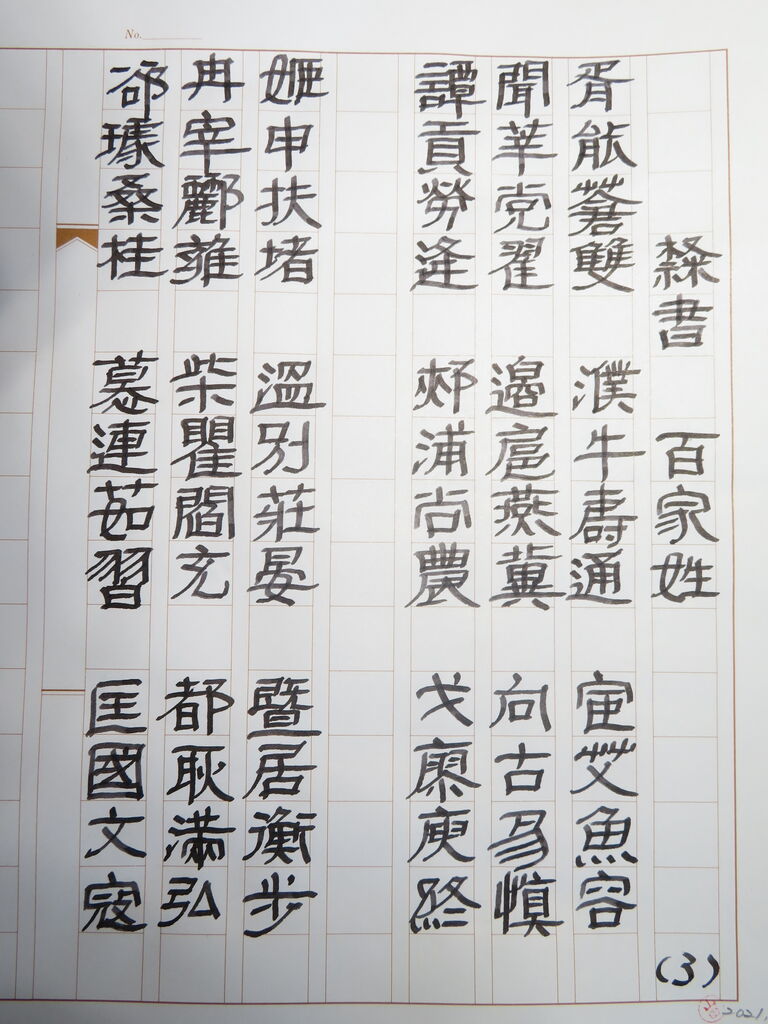 No.
隸書 百家姓 (3)
胥能蒼雙 濮牛壽通 宦艾魚容
聞莘党翟 邊扈燕冀 向古易慎
譚貢勞逄 郟浦尚農 戈廖庾終
姬申扶堵 溫別莊晏 暨居衡步
冉宰酈雍 柴瞿閻充 都耿滿弘
郤璩桑桂 慕連茹習 匡國文寇
2021.